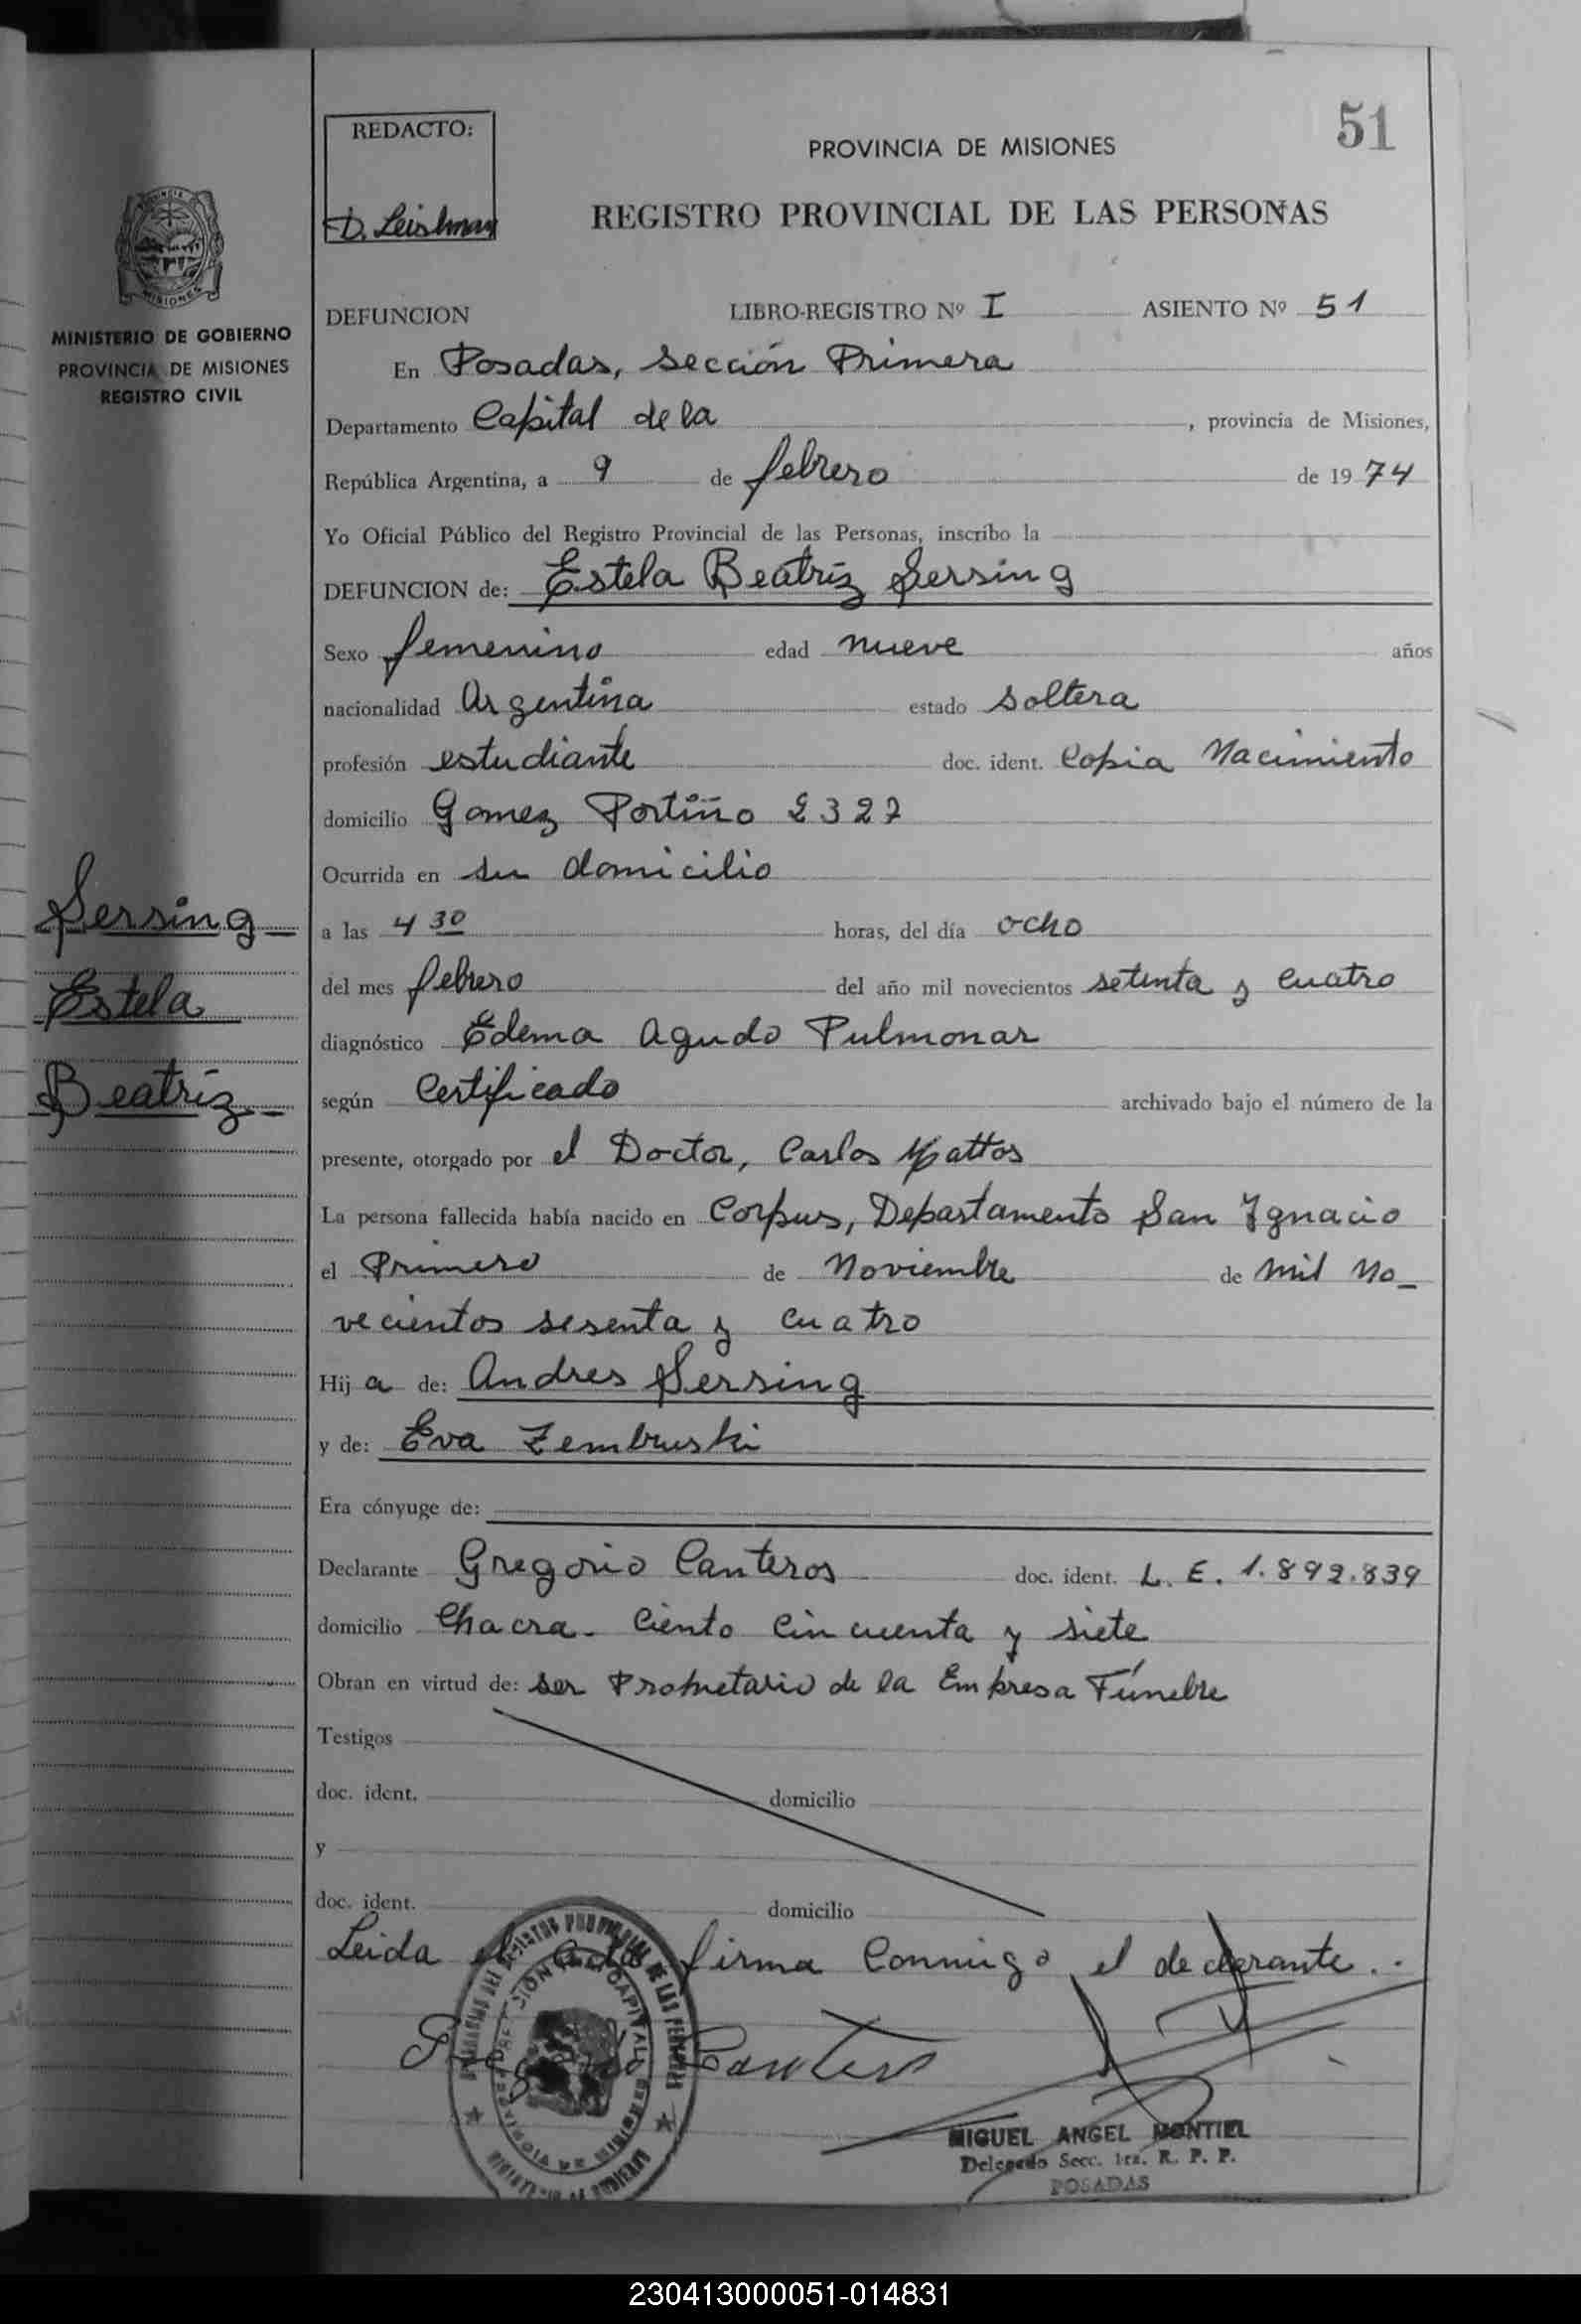 51
REDACTO:
D. Leishman
PROVINCIA DE MISIONES
REGISTRO PROVINCIAL DE LAS PERSONAS
MISIONES
MINISTERIO DE GOBIERNO
PROVINCIA DE MISIONES
REGISTRO CIVIL
DEFUNCION LIBRO-REGISTRO Nº I ASIENTO Nº 51
En Posadas, Sección Primera
Departamento Capital de la , provincia de Misiones,
República Argentina, a 9 de febrero de 1974
Yo Oficial Público del Registro Provincial de las Personas, inscribo la
DEFUNCION de: Estela Beatriz Sersing
Sexo femenino edad nueve años
nacionalidad Argentina estado soltera
profesión estudiante doc. ident. Copia Nacimiento
domicilio Gomez Portiño 2327
Ocurrida en su domicilio
a las 4 30 horas, del día ocho
del mes febrero del año mil novecientos setenta y cuatro
diagnóstico Edema Agudo Pulmonar
según Certificado archivado bajo el número de la
presente, otorgado por el Doctor, Carlos Mattos
La persona fallecida había nacido en Corpus, Departamento San Ignacio
el Primero de Noviembre de mil no_
vecientos sesenta y cuatro
Hija de: Andres Sersing
y de: Eva Zembruski
Era cónyuge de:
Declarante Gregorio Canteros doc. ident. L. E. 1.892.839
domicilio Chacra - Ciento Cincuenta y siete
Obran en virtud de: ser Propietario de la Empresa Fúnebre
Testigos
doc. ident. domicilio
y
doc. ident. domicilio
Leida el acta firma Conmigo el declarante..
Canteros
MIGUEL ANGEL MONTIEL
Delegado Secc. 1ra. R. P. P.
POSADAS
Sersing
Estela
Beatriz
230413000051-014831